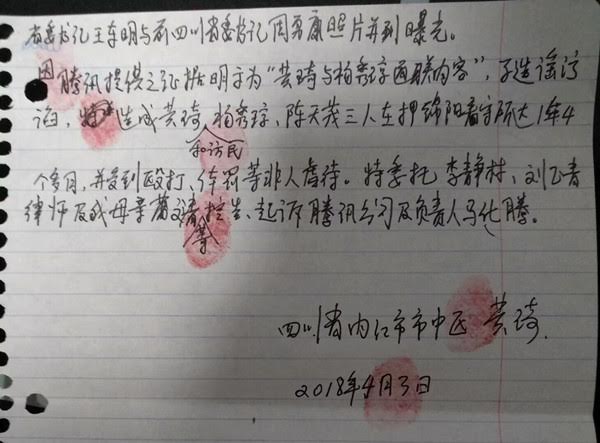 省委书记王东明与前四川省委书记周永康照片并列曝光。
因腾讯提供之证据明示为“黄琦与杨秀琼通联内容”,
造成黄琦、杨秀琼、陈天茂三人在押绵阳看守所达1年4
和访民
个多月,并受到殴打、体罚等非人虐待。特委托李静林、刘正清
律师及我母亲蒲文清 控告、起诉腾讯公司及负责人马化腾。
等
四川省内江市市中区 黄琦.
2018年4月3日